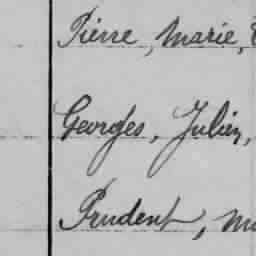 Pierre, Marie,
Georges, Julien,
Prudent,